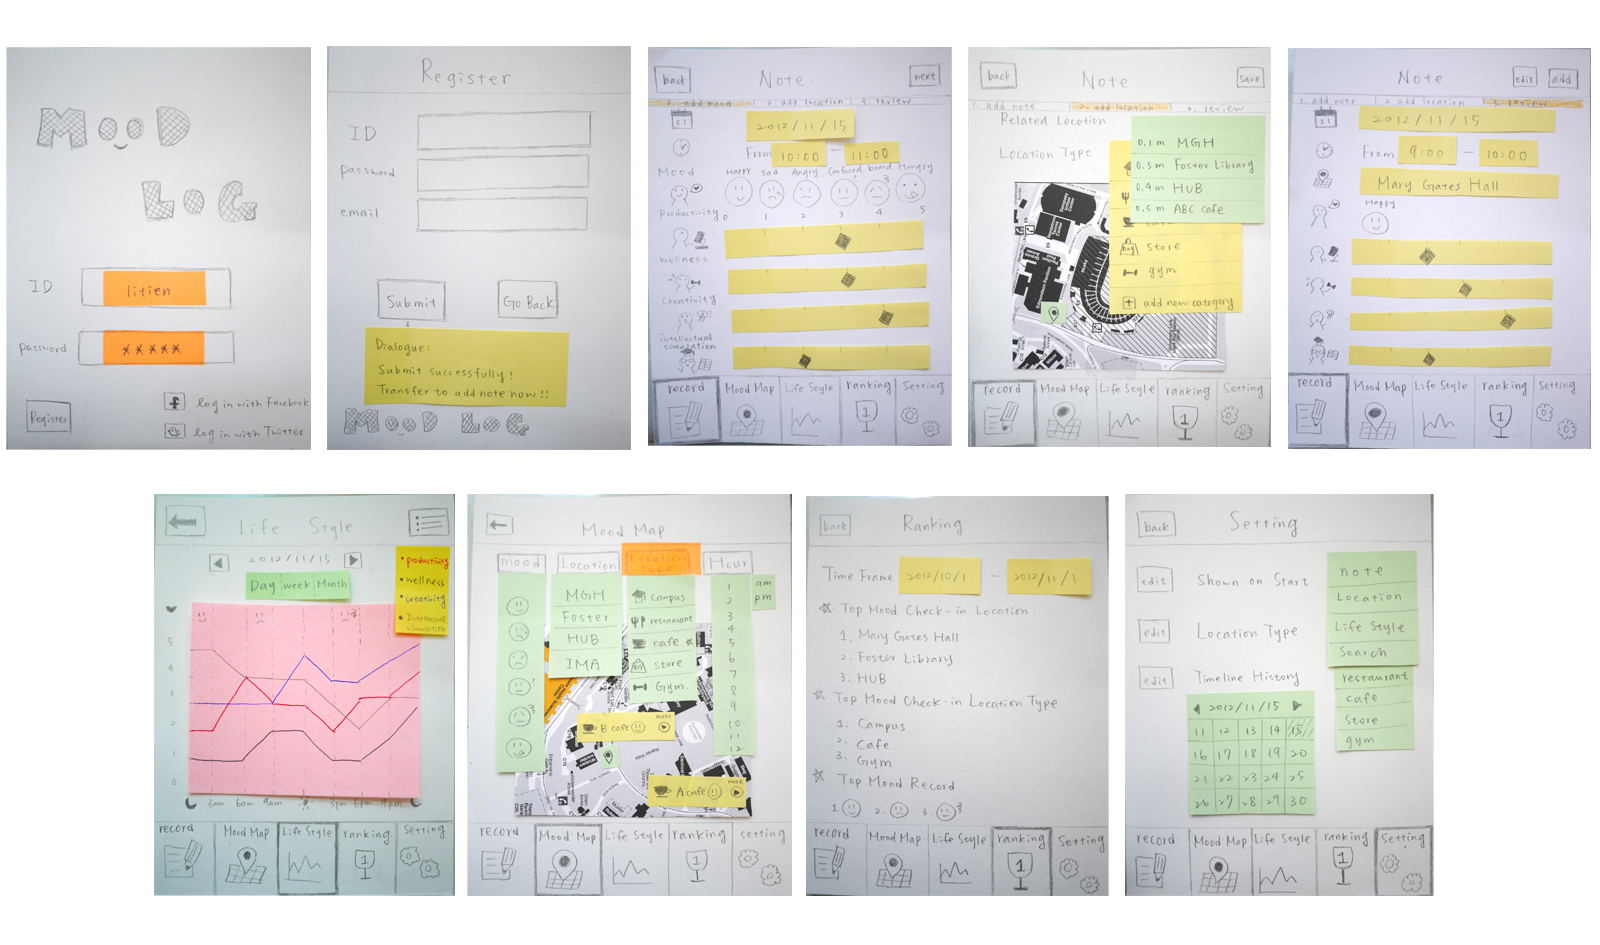 MooD
LoG
ID
litien
password
*****
Register
log in with Facebook
log in with Twitter
Register
ID
password
email
Submit
Go Back
Dialogue:
Submit successfully!
Transfer to add note now!!
MooD LoG
back
Note.
next
1. add mood
2. add location
3. review
31
2012/11/15
From 10:00 — 11:00
Mood
Happy
Sad
Angry
Confused
board
Hungry
Productivity
0 1 2 3 4 5
wellness
Creativity
intellectual
simulation
record
Mood Map
Life Style
ranking
Setting
1
back
Note
save
1. add note
2. add location
3. review
Related Location
Location Type
0.1m MGH
0.3m Foster Library
0.4m HUB
0.5m ABC cafe
store
gym
add new category
record
Mood Map
Life Style
ranking
Setting
1
Note
edit
add
1. add note
2. add location
3. review
31
2012/11/15
From 9:00 — 10:00
Mary Gates Hall
Happy
record
Mood Map
Life Style
ranking
Setting
1
Life Style
2012/11/15
Day week Month
productivity
wellness
creativity
Intellectual
5
4
3
2
1
0
3am 6am 9am 3pm 6pm 9pm
record
Mood Map
Life Style
ranking
Setting
1
Mood Map
mood
Location
Location
Type
Hour
MGH
Foster
HUB
IMA
campus
restaurant
cafe
store
Gym.
1
2
3
4
5
6
7
8
9
10
11
12
am
pm
B cafe
more
A cafe
more
record
Mood Map
Life Style
ranking
setting
1
back
Ranking
Time Frame 2012/10/1 — 2012/11/1
Top Mood Check-in Location
1. Mary Gates Hall
2. Foster Library
3. HUB
Top Mood Check-in Location Type
1. Campus
2. Cafe.
3. Gym
Top Mood Record
1. 2. 3.
record
Mood Map
Life Style
ranking
Setting
1
back
Setting
edit
Shown on Start
edit
Location Type
edit
Timeline History
note
Location
Life Style
Search
restaurant
cafe
store
gym
2012/11/15
11 12 13 14 15
16 17 18 19 20
21 22 23 24 25
26 27 28 29 30
record
Mood Map
Life Style
ranking
Setting
1